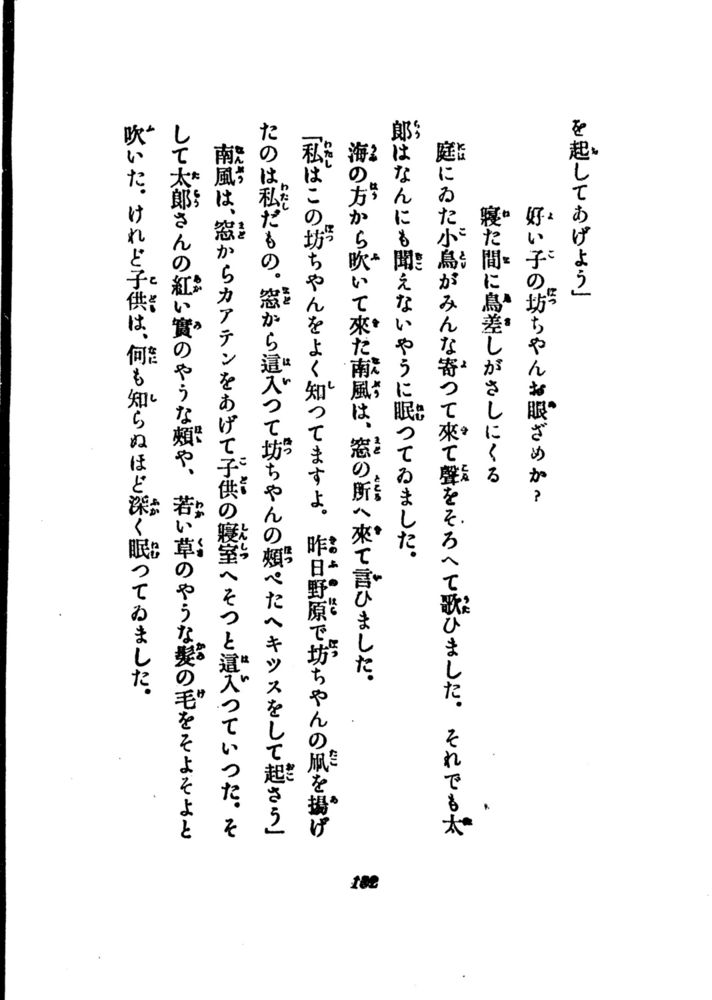 を起してあげよう」
好い子の坊ちやんお眼ざめか？
寢た間に鳥差しがさしにくる
庭にゐた小鳥がみんな寄つて來て聲をそろへて歌ひました。それでも太
郎はなんにも聞えないやうに眠つてゐました。
海の方から吹いて來た南風は、窓の所へ來て言ひました。
「私はこの坊ちやんをよく知つてますよ。昨日野原で坊ちやんの凧を揚げ
たのは私だもの。窓から這入つて坊ちやんの頬ぺたへキツスをして起さう」
南風は、窓からカアテンをあげて子供の寢室へそつと這入つていつた。そ
して太郎さんの紅い實のやうな頬や、若い草のやうな髮の毛をそよそよと
吹いた。けれど子供は、何も知らぬほど深く眠つてゐました。
132